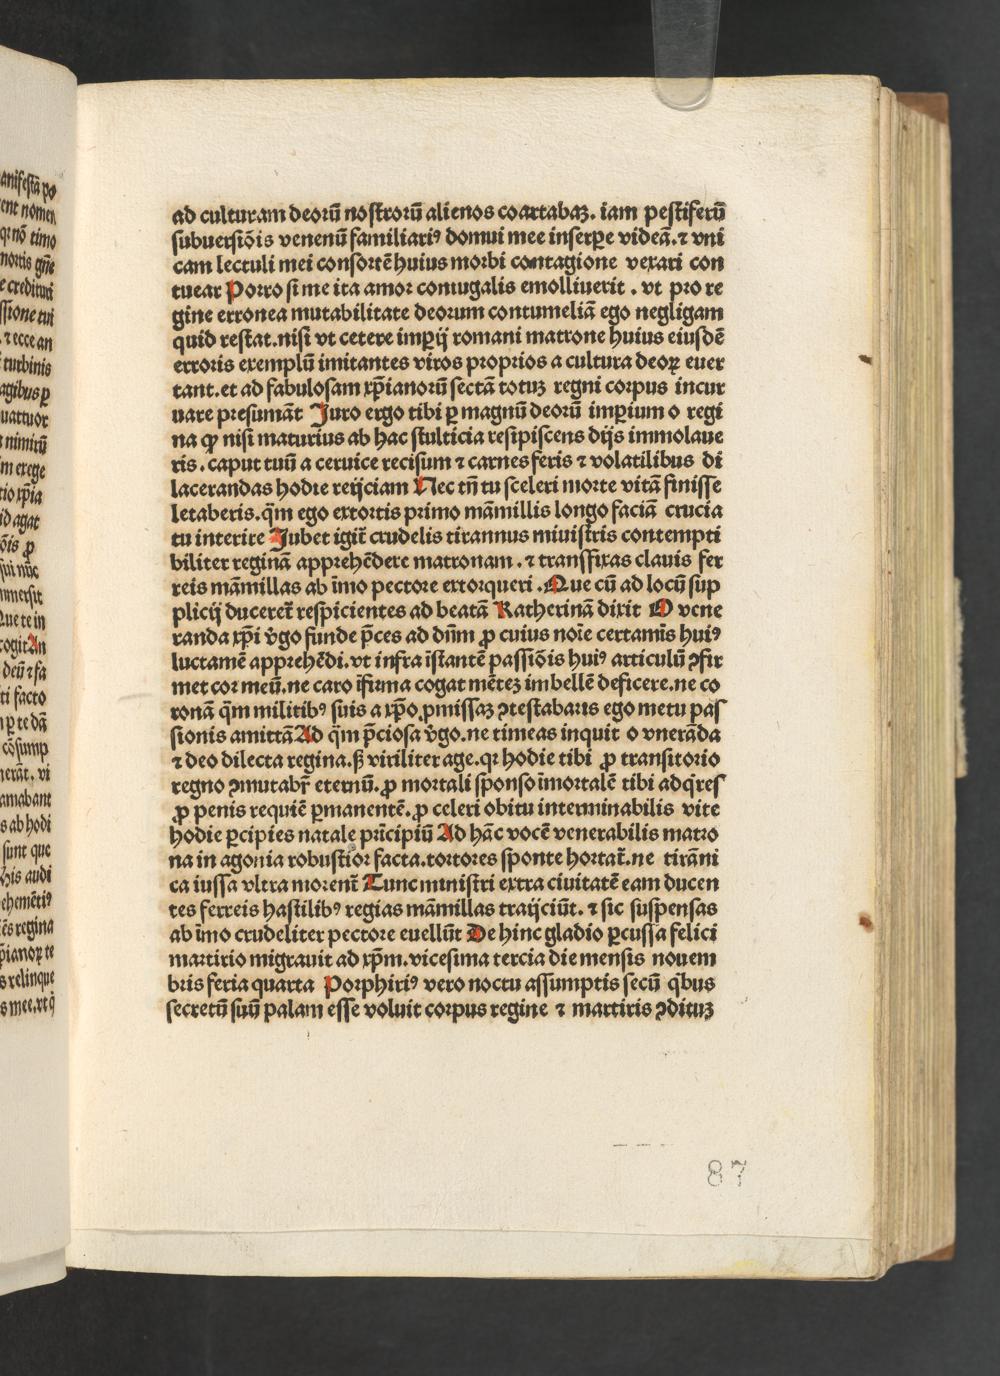 ad culturam deorū nostrorū alienos coartabaꝫ. iam pestiferū
subuersiōis venenū familiariꝰ domui mee inserpe videā. ⁊ vni
cam lectuli mei consortē huius morbi contagione vexari con
tuear Porro si me ita amor coniugalis emolliuerit . vt pro re
gine erronea mutabilitate deorum contumeliā ego negligam
quid restat. nisi vt cetere imꝑij romani matrone huius eiusdē
erroris exemplū imitantes viros proprios a cultura deoꝝ euer
tant. et ad fabulosam xp̄ianorū sectā totuꝫ regni corpus incur
uare presumāt Juro ergo tibi ꝑ magnū deorū imꝑium o regi
na ꝙ nisi maturius ab hac stulticia resipiscens dijs immolaue
ris. caput tuū a ceruice recisum ⁊ carnes feris ⁊ volatilibus di
lacerandas hodie reijciam Nec tn̄ tu sceleri morte vitā finisse
letaberis. q̄m ego extortis primo māmillis longo faciā crucia
tu interire Jubet igit̄ crudelis tirannus miuistris contempti
biliter reginā apprehēdere matronam. ⁊ transfixas clauis fer
reis māmillas ab īmo pectore extorqueri . Que cū ad locū sup
plicij duceret̄ respicientes ad beatā Katherinā dixit O vene
randa xp̄i v̄go funde p̄ces ad dn̄m ꝓ cuius noīe certamīs huiꝰ
luctamē apprehēdi. vt infra īstantē passiōis huiꝰ articulū ꝯfir
met cor meū. ne caro īfirma cogat mēteꝫ imbellē deficere. ne co
ronā q̄m militibꝰ suis a xp̄o ꝓmissaꝫ ꝯtestabaris ego metu pas
sionis amittā Ad q̄m p̄ciosa v̄go. ne timeas inquit o vnerāda
⁊ deo dilecta regina. sꝫ viriliter age. qꝛ hodie tibi ꝓ transitorio
regno ꝯmutabr̄ eternū. ꝓ mortali sponso īmortalē tibi adq̇res
ꝓ penis requiē ꝑmanentē. ꝓ celeri obitu interminabilis vite
hodie ꝑcipies natale prīcipiū Ad hāc vocē venerabilis matro
na in agonia robustior facta. tortores sponte hortat̄. ne tirāni
ca iussa vltra morent̄ Tunc ministri extra ciuitatē eam ducen
tes ferreis hastilibꝰ regias māmillas traijciūt. ⁊ sic suspensas
ab īmo crudeliter pectore euellūt De hinc gladio ꝑcussa felici
martirio migrauit ad xp̄m. vicesima tercia die mensis nouem
bris feria quarta Porphiriꝰ vero noctu assumptis secū q̇bus
secretū suū palam esse voluit corpus regine ⁊ martiris ꝯdituꝫ
87